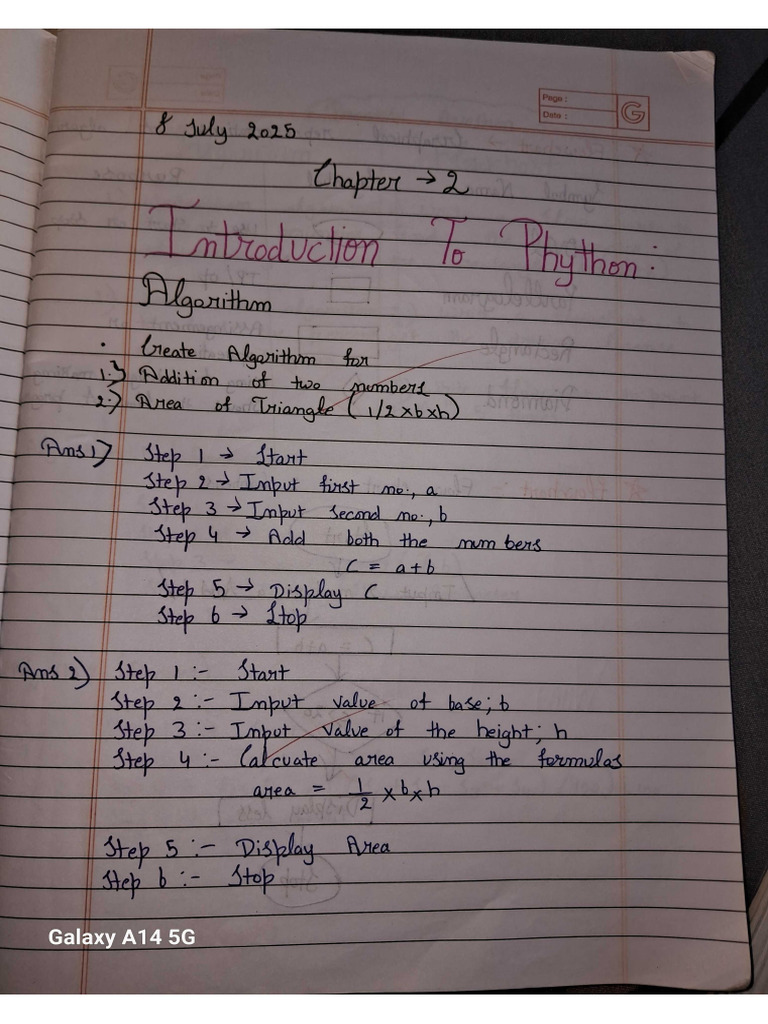 Page :
Date :
G
8 July 2025
Chapter → 2
Introduction To Phython :
Algorithm
• Create Algorithm for
1.) Addition of two numbers
2.) Area of Triangle (1/2 × b × h)
Ans 1) Step 1 → Start
Step 2 → Input first no., a
Step 3 → Input second no., b
Step 4 → Add both the numbers
C = a + b
Step 5 → Display C
Step 6 → Stop
Ans 2) Step 1 :- Start
Step 2 :- Input value of base; b
Step 3 :- Input value of the height; h
Step 4 :- Calcuate area using the formulas
area = 1/2 × b × h
Step 5 :- Display Area
Step 6 :- Stop
Galaxy A14 5G